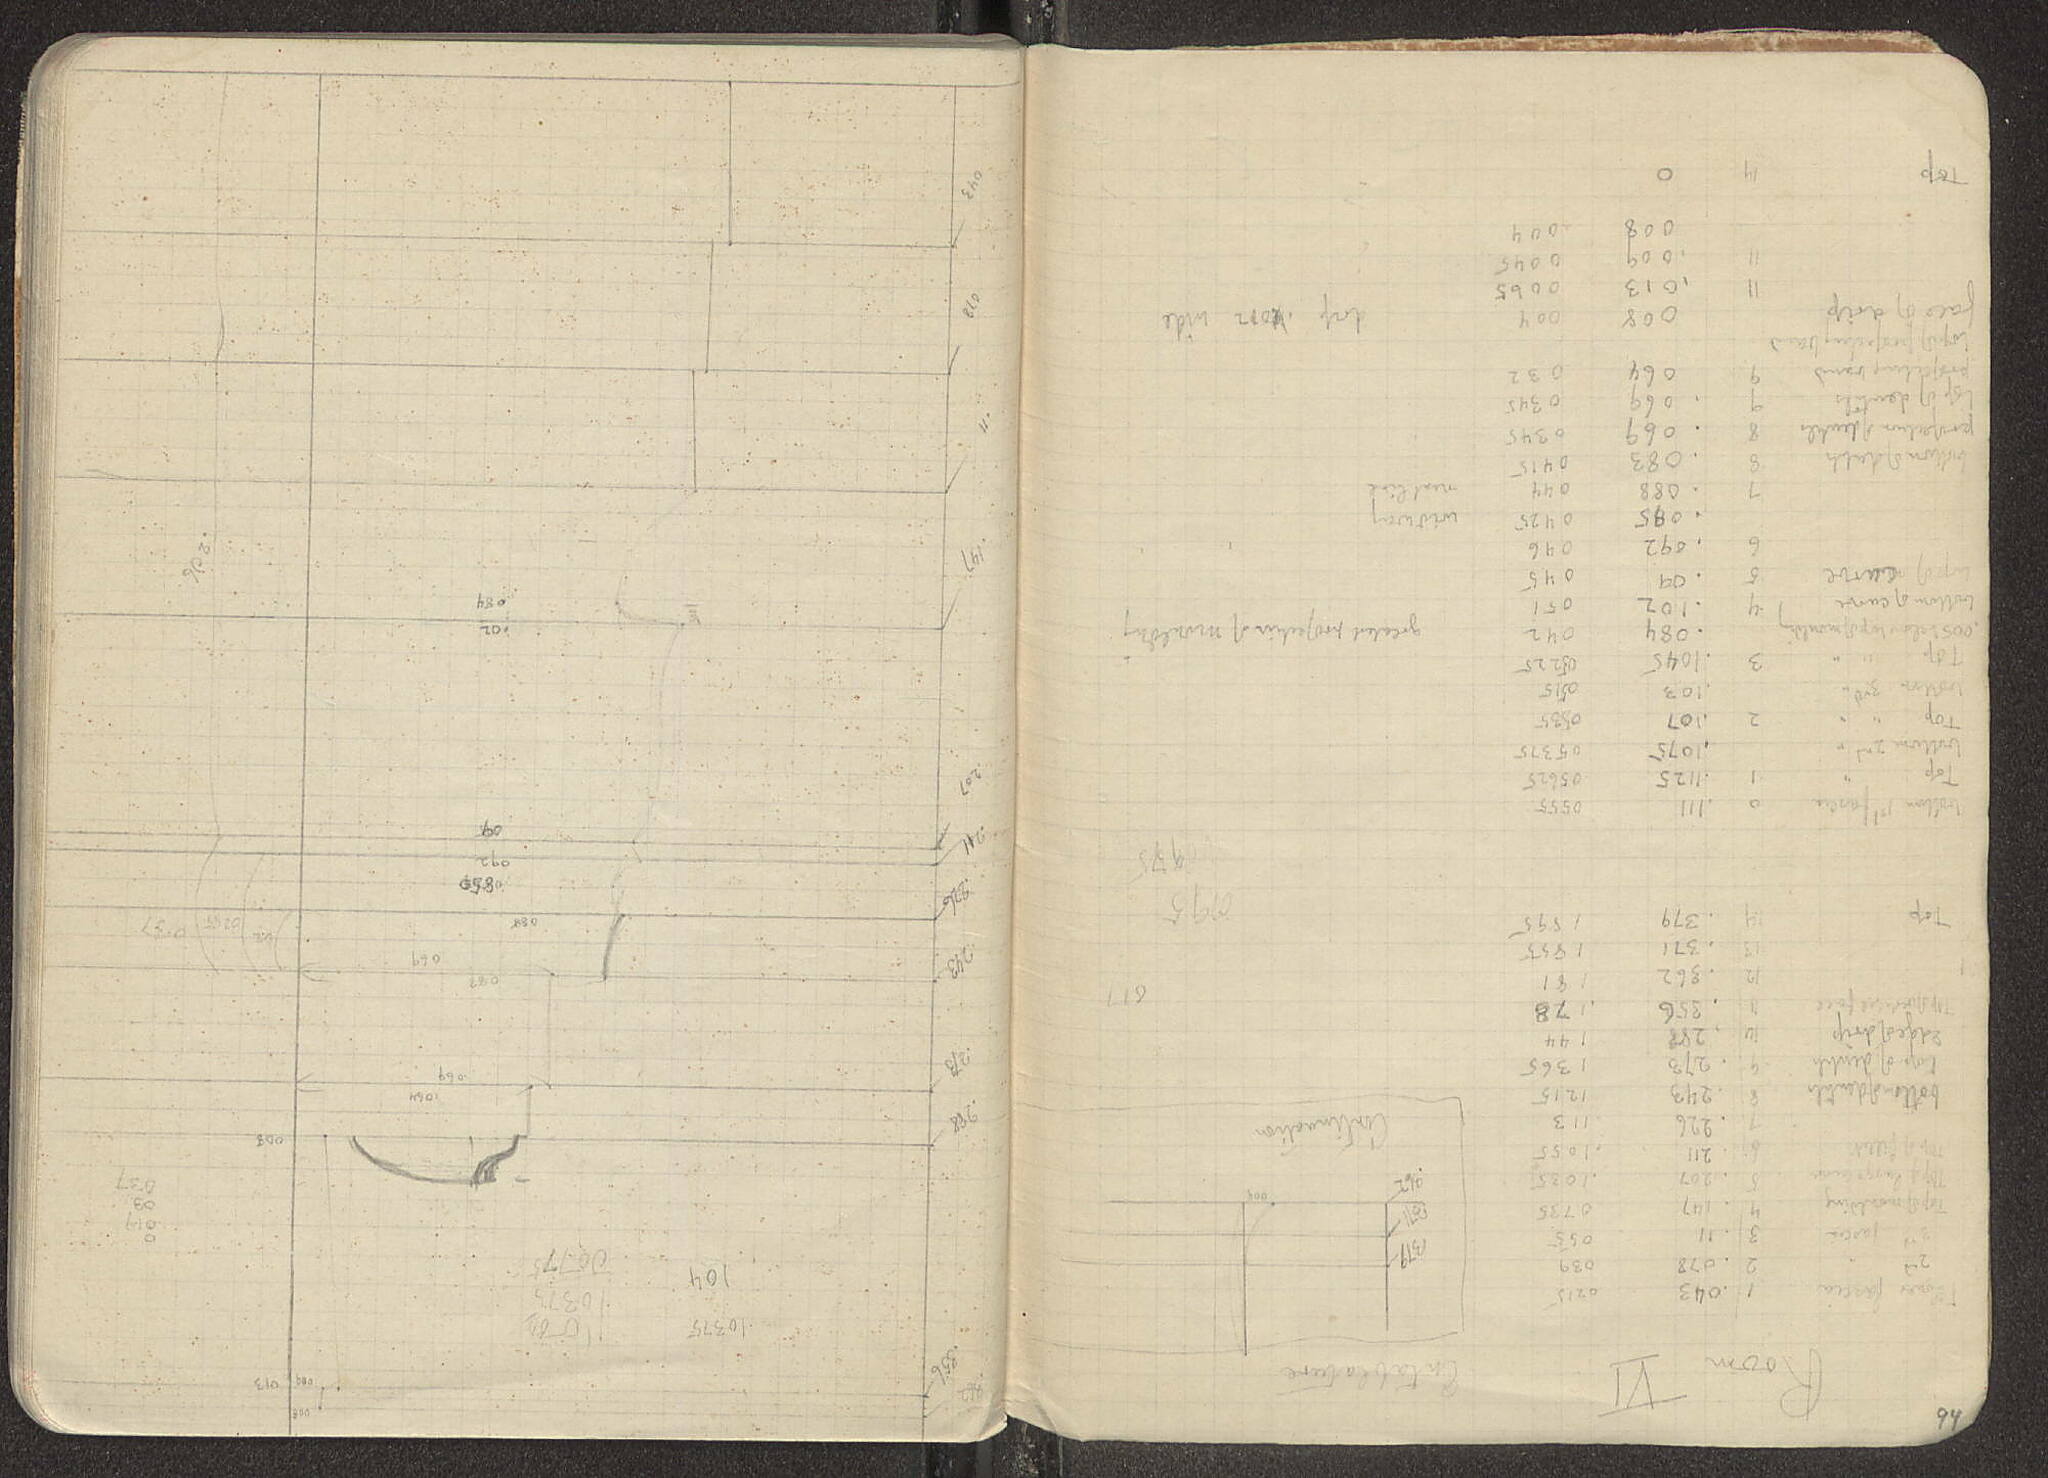 94
Room VI Entablature
Lower fascia 1 .043 0215
2nd " 2 .078 039
3rd fascia 3 .11 055
Top of moulding 4 .147 0735
5 .207 .1035
Top of fillet 6 .211 .1055
7 .226 113
bottom of dentils 8 .243 1215
top of dentils 9 .273 1365
edge of drip 10 .288 144
Top of vertical face 11 .356 .178
12 .362 181
13 .371 1855
Top 14 .379 1895
.379
.371
.362
009
Continuation
017
0995
975
bottom 1st fascia 0 .111 0555
Top " 1 .1125 05625
bottom 2nd " .1075 05375
Top " " 2 .107 0535
bottom 3rd " .103 0515
Top " " 3 .1045 05225
.005 below top of moulding .084 042 greatest projection of moulding
bottom of curve 4 .102 051
top of curve 5 .09 045
6 .092 046
.085 0425 midway
7 .088 044 next line
bottom of dentils 8 .083 0415
projection of dentils 8 .069 0345
top of dentils 9 .069 0345
projecting band 9 064 032
top of projecting band
face of drip 008 004 drip .012 wide
11 .013 0065
11 .009 0045
008 004
Top 14 0
008
.362
.356
009
013
10375
104
10375
0
017
03
037
008
.288
.064
.069
.273
.083
069
.243
088
.226
.085
092
.211
09
.207
.02
084
.147
.206
.11
.078
.043